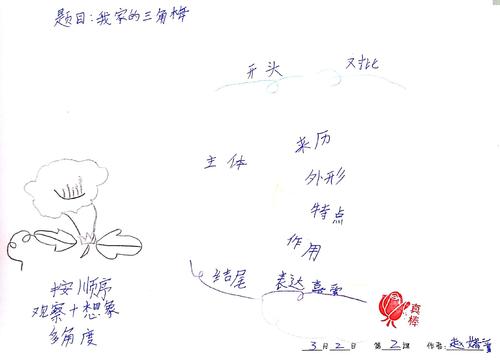 题目:我家的三角梅
开头 对比
主体
来历
外形
特点
作用
结尾 表达喜爱
按顺序
观察+想象
多角度
真棒
3月2日 第2课 作者:赵